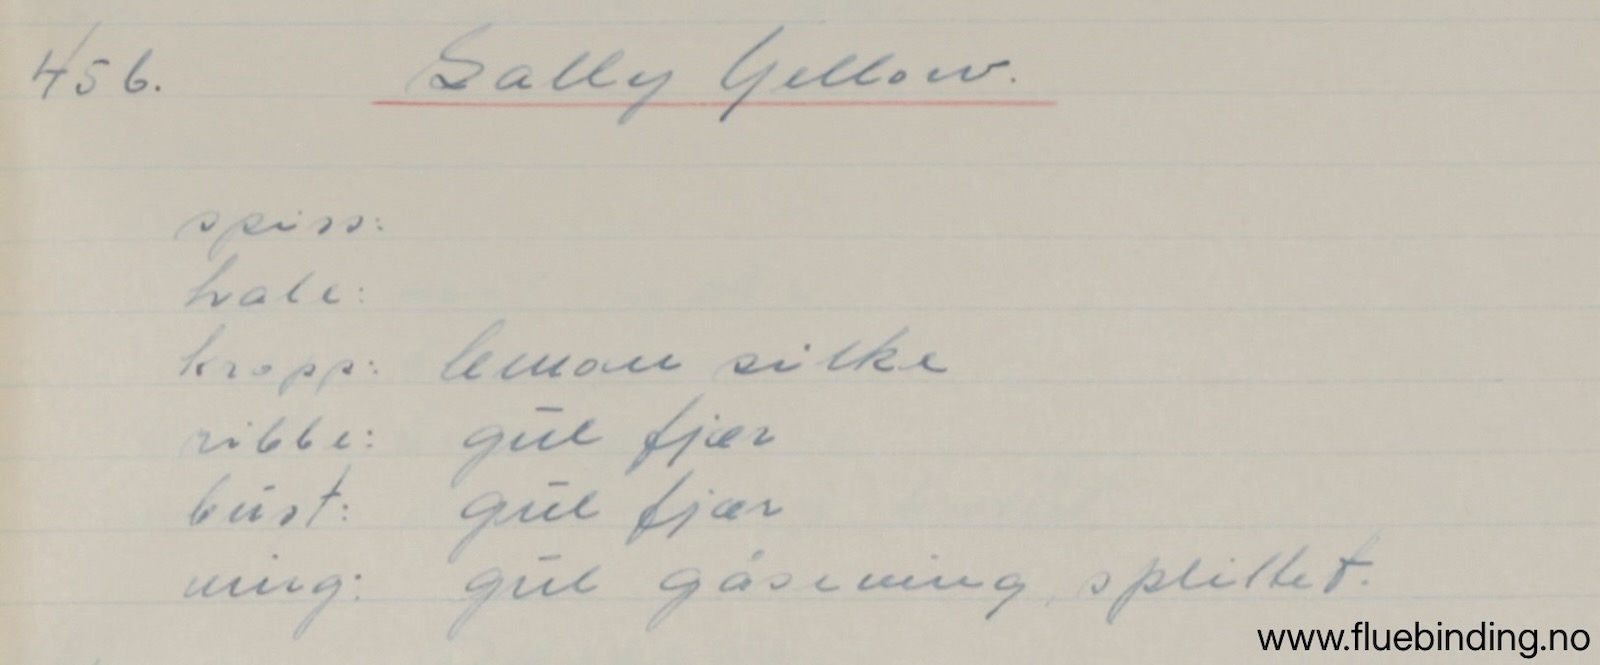 456. Sally Yellow.
spiss:
hale:
kropp: lemon silke
ribbe: gul fjær
bust: gul fjær
ving: gul gåseving, splittet.
www.fluebinding.no